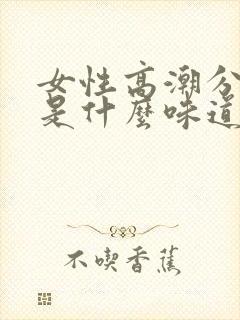 女性高潮分
是什麼味道
不喫香蕉